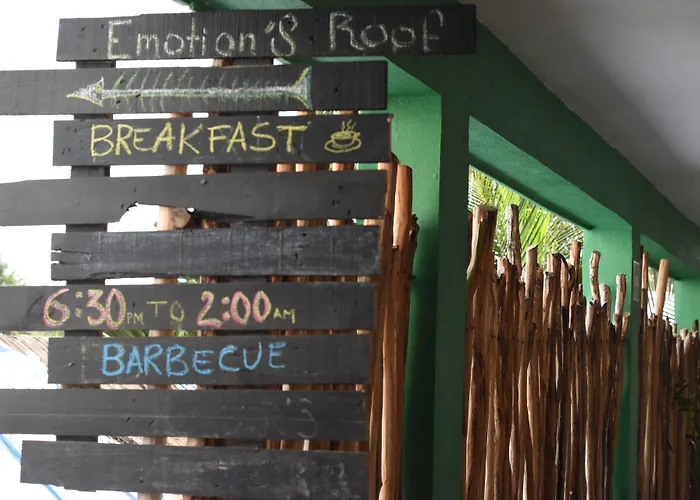 Emotion'S Roof
BREAKFAST
6:30PM TO 2:00AM
BARBECUE